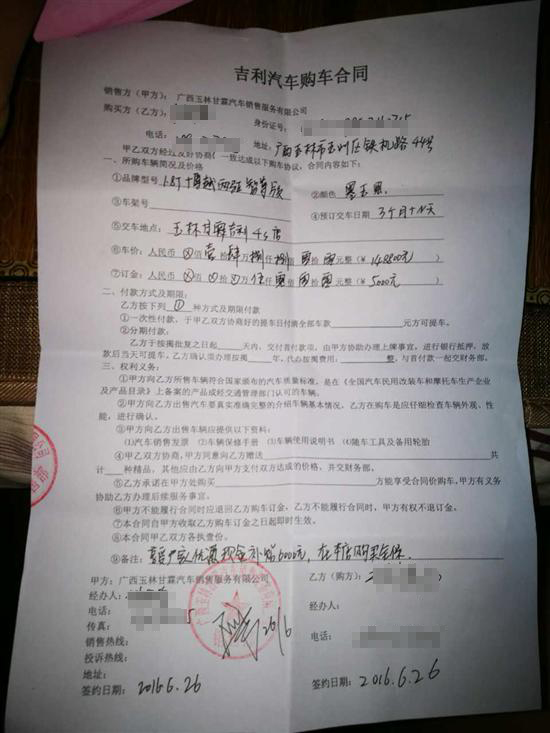 吉利汽车购车合同
销售方(甲方):广西玉林甘霖汽车销售服务有限公司
购买方(乙方):
身份证号:
电话:
地址:广西玉林市玉州区 机路44号
甲乙双方经过友好协商,一致达成以下购车协议,合同内容如下:
一、所购车辆简况及价格
①品牌型号 1.8T 博越 智尊版
②颜色 墨玉黑
③车架号
④预订交车日期 3个月+ 天
⑤交车地点:玉林甘霖吉利4S店
⑥车价:人民币 ⊗佰 壹拾 肆万 捌仟 捌佰 零拾 零元整(¥148800元)
⑦订金:人民币 ⊗佰 ⊗拾 ⊗万 伍仟 零佰 零拾 零元整(¥5000元)
二、付款方式及期限:
乙方按下列 ① 种方式及期限付款
①一次性付款,于甲乙双方协商好的提车日付清全部车款 元方可提车。
②分期付款:
乙方于按揭批复之日起 天内,交付首付款项,由甲方协助办理上牌事宜,进行银行抵押,放
款后当天可提车。乙方确认须办理按揭 年,代办按揭费用: 整,与首付款一起交财务部。
三、权利义务:
①甲方向乙方所售车辆符合国家颁布的汽车质量标准,是在《全国汽车民用改装车和摩托车生产企业
及产品目录》上备案的产品或经交通管理部门认可的车辆。
②甲方向乙方出售汽车要真实准确完整的介绍车辆基本情况,乙方在购车是应仔细检查车辆外观、性
能,进行确认。
③甲方向乙方出售车辆应提供以下资料:
⑴汽车销售发票 ⑵车辆保修手册 ⑶车辆使用说明书 ⑷随车工具及备用轮胎
④甲乙双方协商,甲方同意向乙方赠送 共
计 种精品,其他应由乙方向甲方支付双方达成的价格,并交财务部。
⑤乙方承诺在甲方处购买 方能享受合同价购车,甲方有义务
协助乙方办理后续服务事宜。
⑥甲方不能履行合同时应退回乙方购车订金,乙方不能履行合同时,甲方有权不退订金。
⑦本合同自甲方收取乙方购车订金之日起即时生效。
⑧本合同甲乙双方各执壹份。
⑨备注: 厂家优惠现金补贴6000元,在本店购买全保。
甲方:广西玉林甘霖汽车销售服务有限公司
乙方(购方):
经办人:
经办人:
电话:
传真:
电话:
销售热线:
投诉热线:
地址:
签约日期:2016.6.26
签约日期:2016.6.26